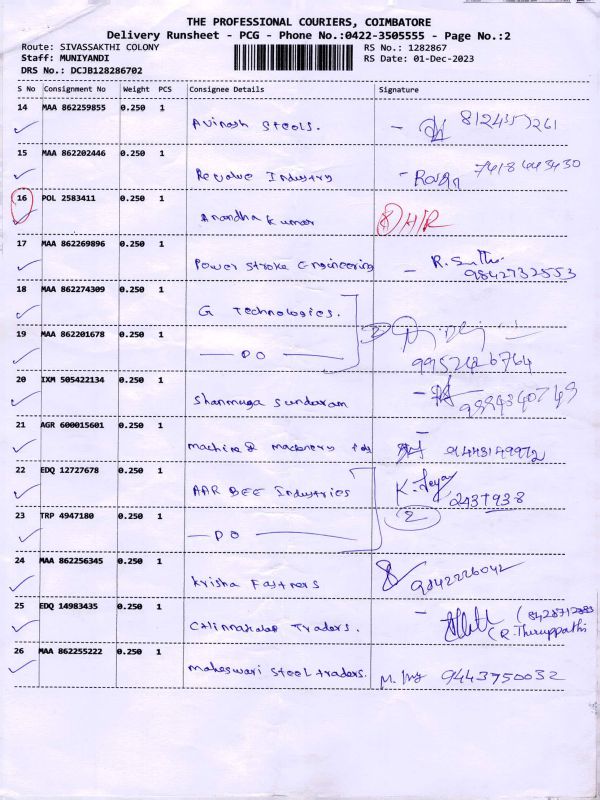 THE PROFESSIONAL COURIERS, COIMBATORE
Delivery Runsheet - PCG - Phone No.:0422-3505555 - Page No.:2
Route: SIVASSAKTHI COLONY RS No.: 1282867
Staff: MUNIYANDI RS Date: 01-Dec-2023
DRS No.: DCJB128286702
S No Consignment No Weight PCS Consignee Details Signature
14 MAA 862259855 0.250 1
Avinash Steels.
15 MAA 862202446 0.250 1
Revolve Industry
16 POL 2583411 0.250 1
Anandha Kumar H/R
17 MAA 862269896 0.250 1
Power Stroke Engineering - 9842732553
18 MAA 862274309 0.250 1
G Technologies.
19 MAA 862201678 0.250 1
— DO — 9952426764
20 IXM 505422134 0.250 1
Shanmuga Sundaram
21 AGR 600015601 0.250 1
Machine & Machinery
22 EDQ 12727678 0.250 1
AAR BEE Industries K. Jeya
2437938
23 TRP 4947180 0.250 1 2
— DO —
24 MAA 862256345 0.250 1
Krisha Fastners 9842226042
25 EDQ 14983435 0.250 1
Traders. (R. Thiruppathi
26 MAA 862255222 0.250 1
Maheswari Steel traders. 9443750032